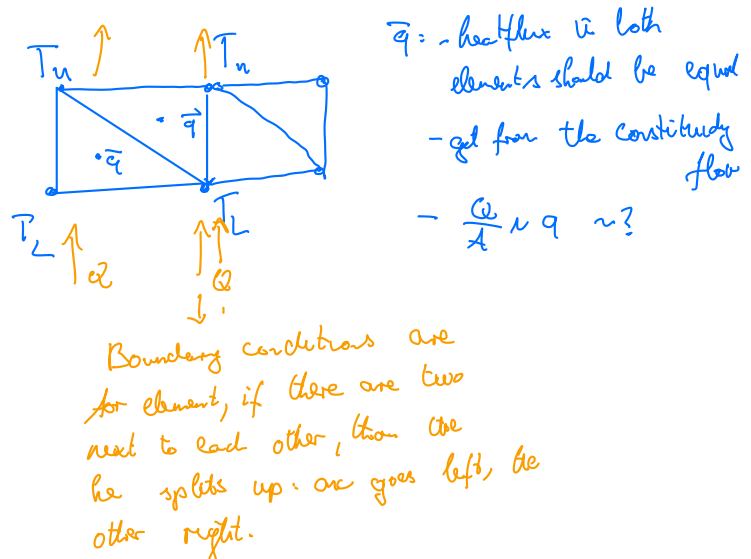 T_u
T_n
q̄
q⃗
T_L
T_L
Q
Q
q̄ : - heatflux in both
elements should be equal
- get from the constitudy
flow
- Q/A ~ q ~?
Boundary conditions are
for element, if there are two
next to each other, than the
he splits up: one goes left, the
other right.